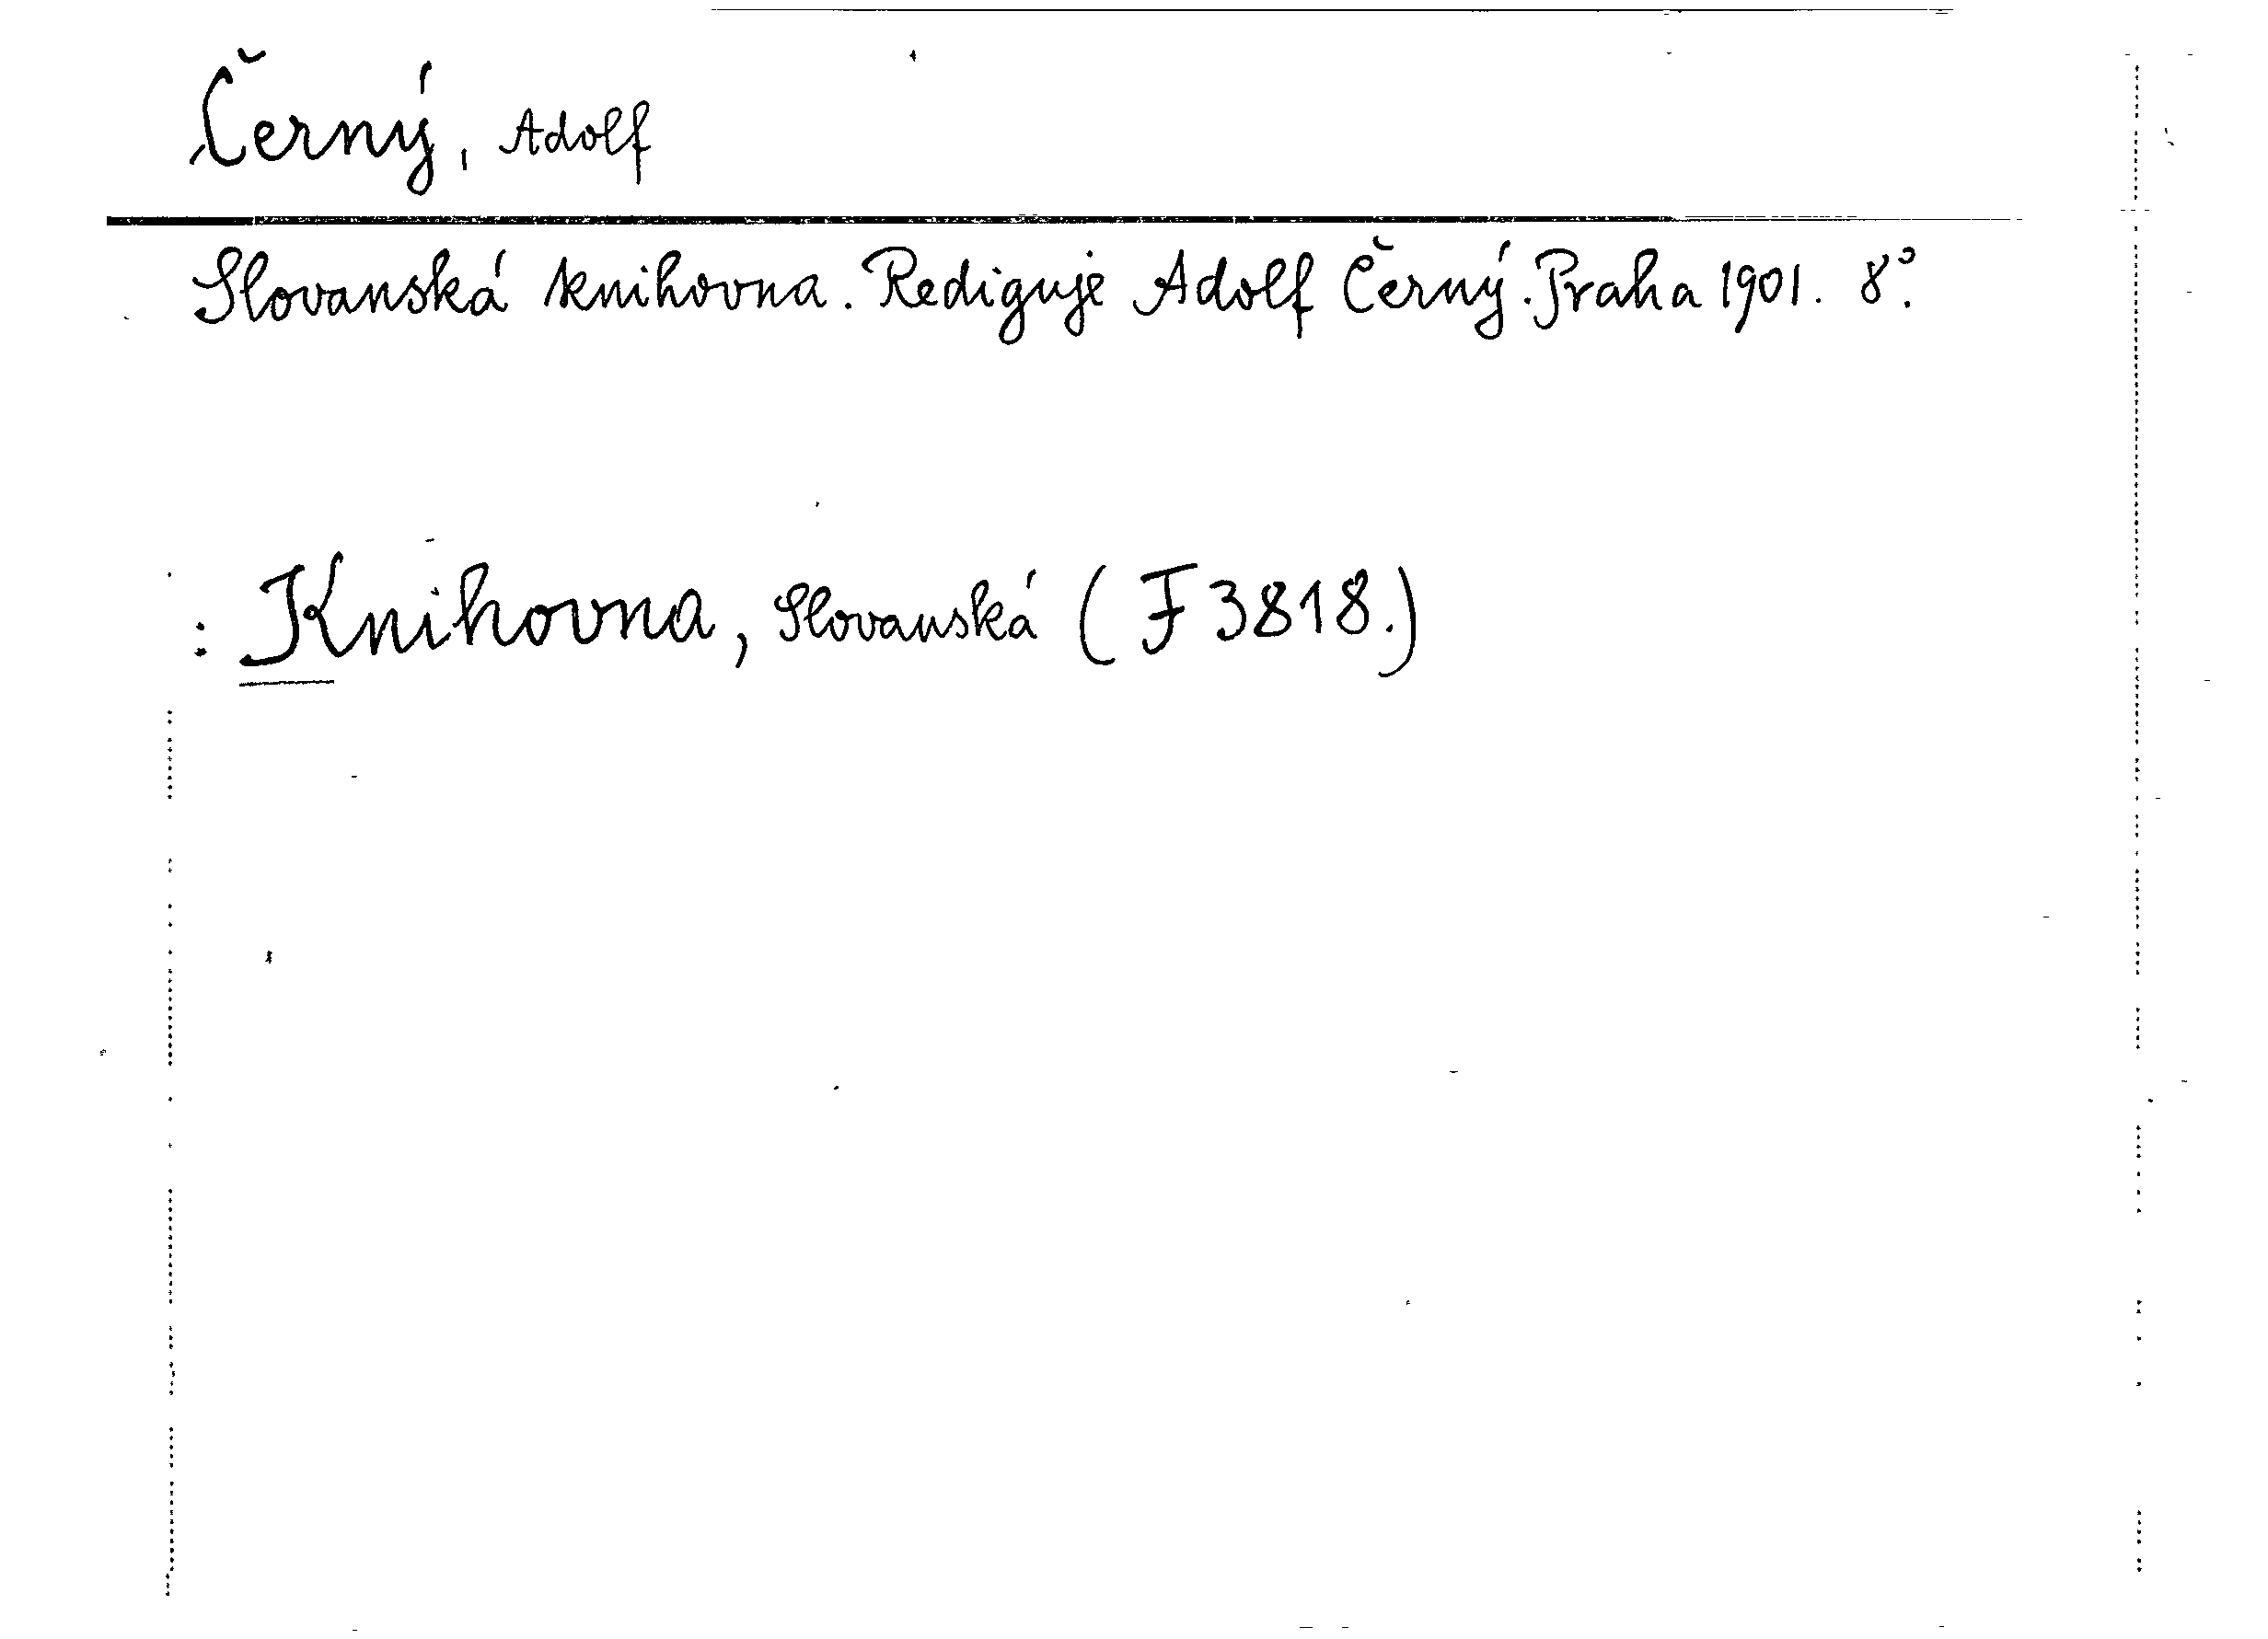 Černý, Adolf
Slovanská knihovna. Rediguje Adolf Černý. Praha 1901. 8°.
: Knihovna, Slovanská (F 3818.)